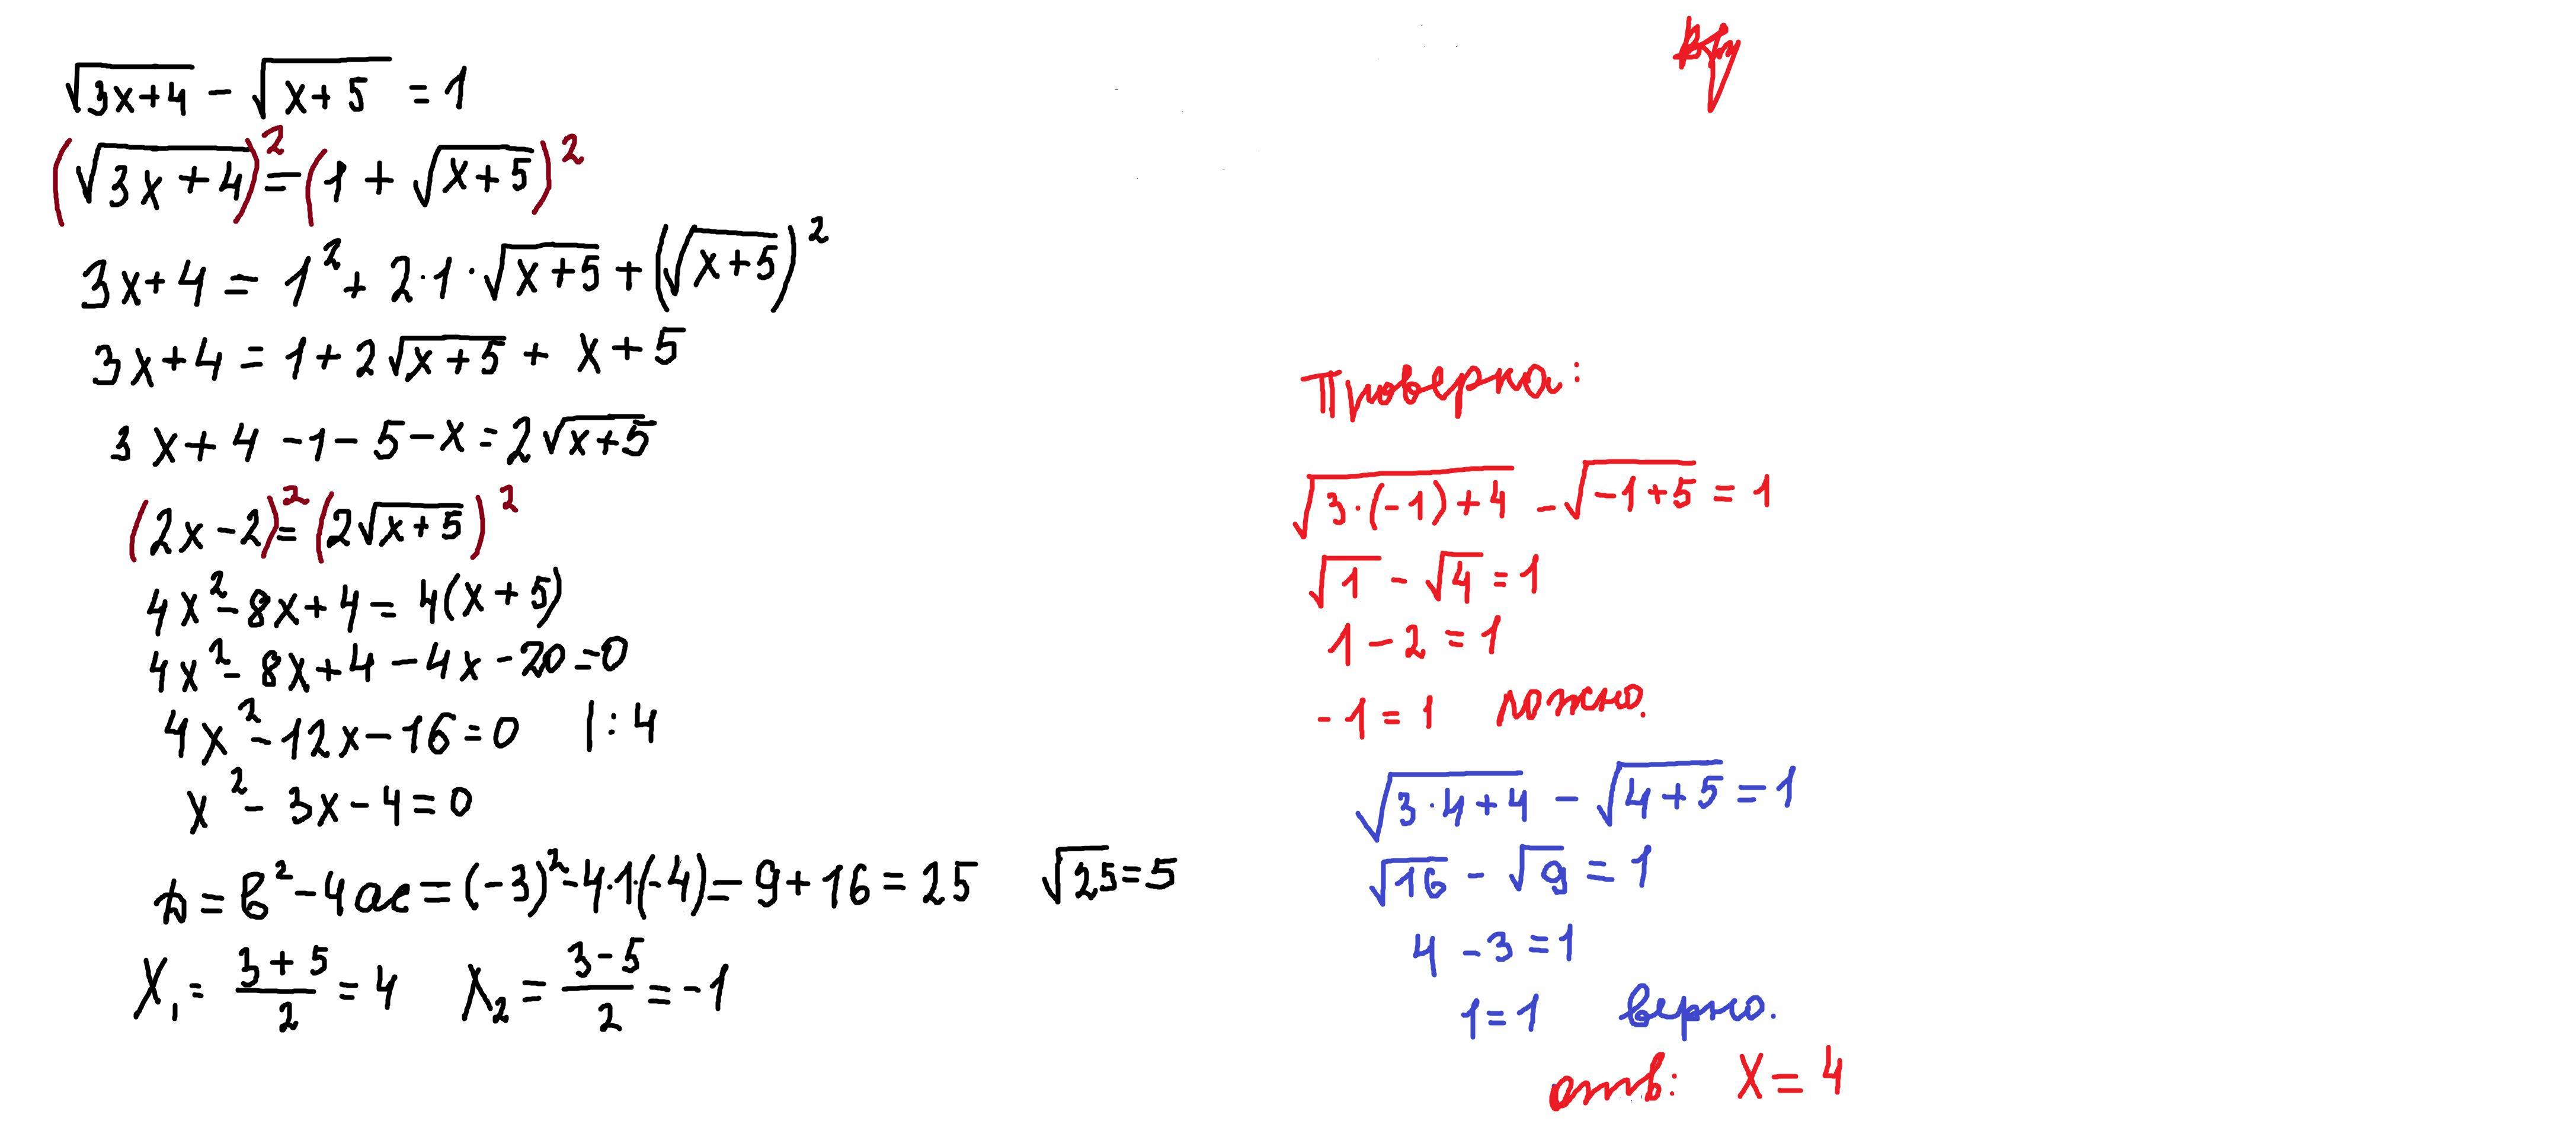 √(3x+4) - √(x+5) = 1
(√(3x+4))² = (1 + √(x+5))²
3x+4 = 1² + 2·1·√(x+5) + (√(x+5))²
3x+4 = 1+2√(x+5) + x+5
3x+4 -1-5-x=2√(x+5)
(2x-2)² = (2√(x+5))²
4x²-8x+4= 4(x+5)
4x²-8x+4-4x-20=0
4x²-12x-16=0 |:4
x²-3x-4=0
D=в²-4ac=(-3)²-4·1·(-4)=9+16=25 √25=5
X₁= (3+5)/2 = 4 X₂ = (3-5)/2 = -1
Проверка:
√(3·(-1)+4) - √(-1+5) = 1
√1 - √4 = 1
1-2=1
-1=1 ложно.
√(3·4+4) - √(4+5) = 1
√16 - √9 = 1
4-3=1
1=1 верно.
отв: X=4